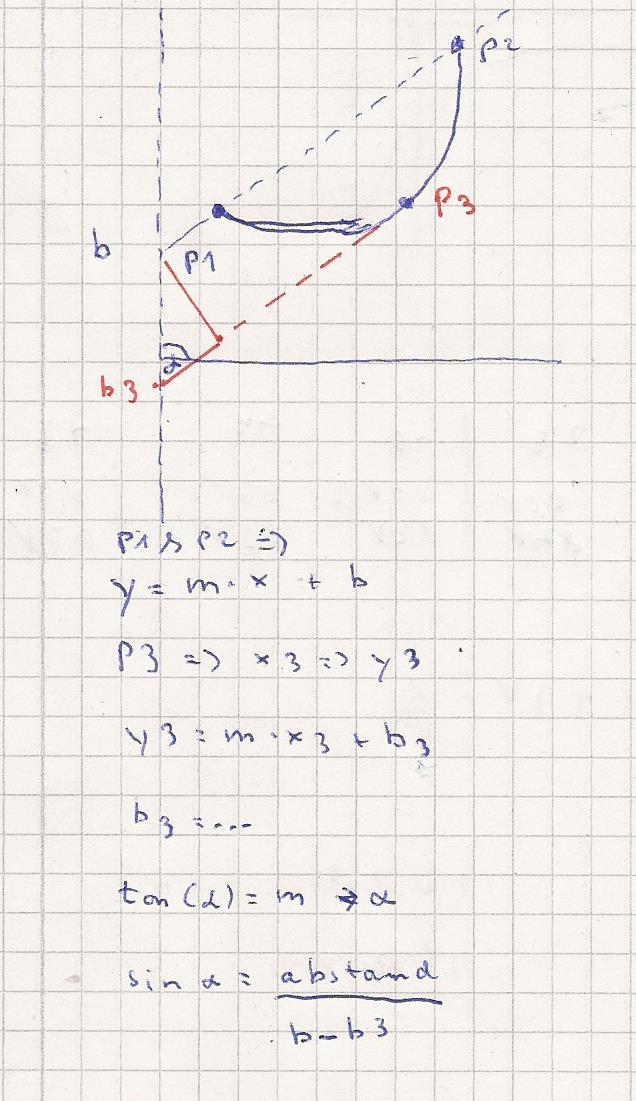 p2
p3
b
p1
α
b3
p1 & p2 =>
y = m·x + b
p3 => x3 => y3
y3 = m·x3 + b3
b3 = ...
tan(α) = m => α
sin α = abstand
b-b3